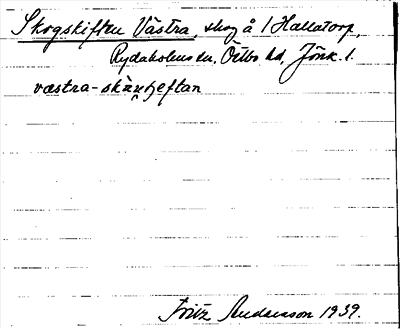 Skogskiften Västra, skog å 1 Hallatorp,
Rydaholms sn, Östbo hd, Jönk. l.
västra-skäux̯eftan
Fritz Andersson 1939.